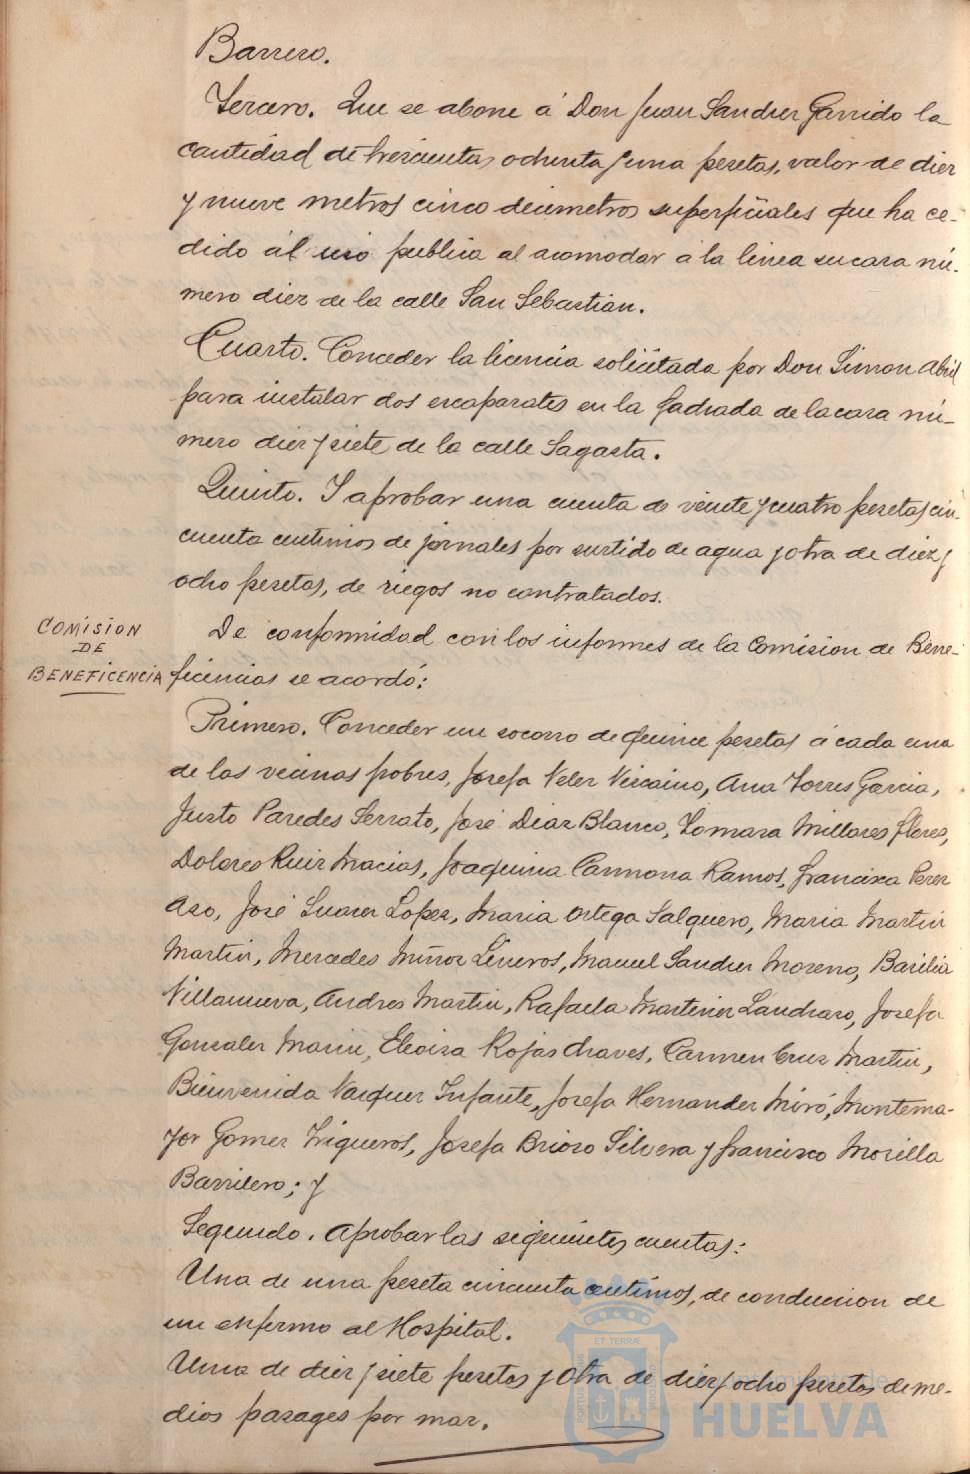 Barrero.
Tercero. Que se abone á Don Juan Sanchez Garrido la
cantidad de trescientas ochenta y una pesetas, valor de diez
y nueve metros cinco decimetros superficiales que ha ce-
dido al uso publico al acomodar a la linea su casa nú-
mero diez de la calle San Sebastian.
Cuarto. Conceder la licencia solicitada por Don Simon Abril
para instalar dos escaparates en la fachada de la casa nú-
mero diez y siete de la calle Sagasta.
Quinto. Y aprobar una cuenta de veinte y cuatro pesetas cin-
cuenta centimos de jornales por surtido de agua y otra de diez y
ocho pesetas, de riegos no contratados.
COMISION
DE
BENEFICENCIA
De conformidad con los informes de la Comision de Bene-
ficencias se acordó:
Primero. Conceder un socorro de quince pesetas á cada una
de las vecinas pobres, Josefa Velez Viscaino, Ana Torres Garcia,
Justo Paredes Serrato, José Diaz Blanco, Tomasa Millares Flores,
Dolores Ruiz Macias, Joaquina Carmona Ramos, Francisca Perez
Aso, José Suarez Lopez, Maria Ortega Salguero, Maria Martin
Martin, Mercedes Muñoz Lineros, Manuel Sanchez Moreno, Basilia
Villanueva, Andres Martin, Rafaela Martinez Landraso, Josefa
Gonzalez Marin, Eloisa Rojas Chaves, Carmen Cruz Martin,
Bienvenida Vazquez Infante, Josefa Hernandez Miró, Montema-
yor Gomez Trigueros, Josefa Brioso Silvera y Francisco Morilla
Barrilero; y
Segundo. Aprobar las siguientes cuentas:
Una de una peseta cincuenta centimos, de conduccion de
un enfermo al Hospital.
Una de diez y siete pesetas y otra de diez y ocho pesetas de me-
dios pasages por mar.
Ayuntamiento de
HUELVA